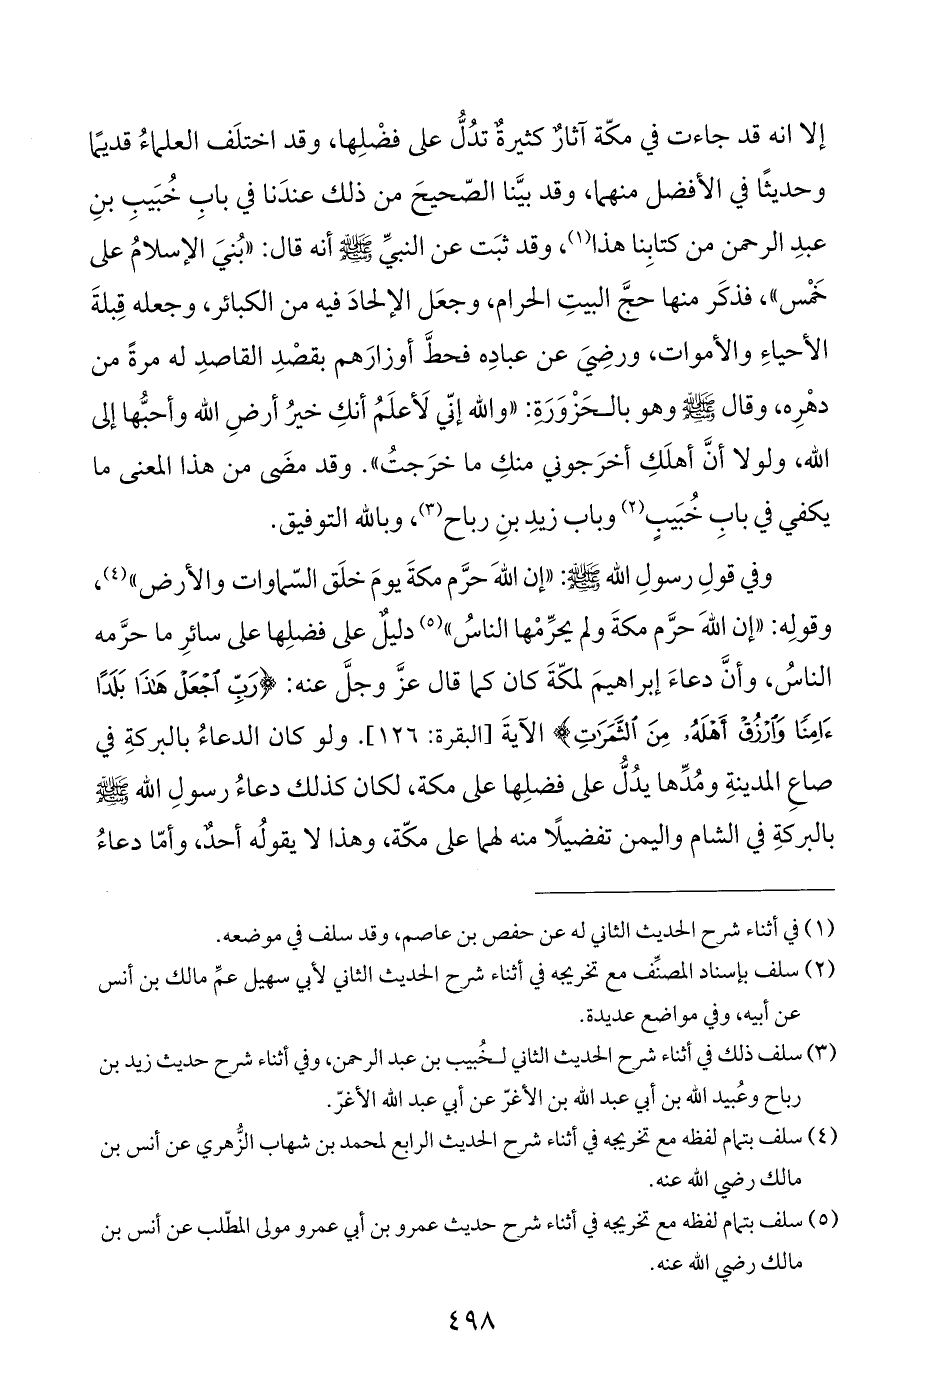 إلا انه قد جاءت في مكّة آثارٌ كثيرةٌ تدُلُّ على فضْلِها، وقد اختلَف العلماءُ قديمًا
وحديثًا في الأفضل منهما، وقد بيَّنا الصّحيحَ من ذلك عندَنا في بابِ خُبَيبِ بنِ
عبدِ الرحمن من كتابِنا هذا(١)، وقد ثبَت عن النبيِّ ﷺ أنه قال: «بُنيَ الإسلامُ على
خَمْس»، فذكَر منها حجَّ البيتِ الحرام، وجعَل الإلحادَ فيه من الكبائر، وجعله قِبلةَ
الأحياءِ والأموات، ورضِيَ عن عبادِه فحطَّ أوزارَهم بقصْدِ القاصدِ له مرةً من
دهْرِه، وقال ﷺ وهو بالـحَزْوَرَةِ: «والله إنّي لَأعلَمُ أنكِ خيرُ أرضِ الله وأحبُّها إلى
الله، ولولا أنَّ أهلَكِ أخرَجوني منكِ ما خرَجتُ». وقد مضَى من هذا المعنى ما
يكفي في بابِ خُبَيبٍ(٢) وباب زيدِ بنِ رباح(٣)، وبالله التوفيق.
وفي قولِ رسولِ الله ﷺ: «إن اللهَ حرَّم مكةَ يومَ خلَق السّماوات والأرض»(٤)،
وقولِه: «إن اللهَ حرَّم مكةَ ولم يحرِّمْها الناسُ»(٥) دليلٌ على فضلِها على سائرِ ما حرَّمه
الناسُ، وأنَّ دعاءَ إبراهيمَ لمكّةَ كان كما قال عزَّ وجلَّ عنه: ﴿رَبِّ ٱجْعَلْ هَٰذَا بَلَدًا
ءَامِنًا وَٱرْزُقْ أَهْلَهُۥ مِنَ ٱلثَّمَرَٰتِ﴾ الآيةَ [البقرة: ١٢٦]. ولو كان الدعاءُ بالبركةِ في
صاعِ المدينةِ ومُدِّها يدُلُّ على فضلِها على مكة، لكان كذلك دعاءُ رسولِ الله ﷺ
بالبركةِ في الشام واليمن تفضيلًا منه لهما على مكّة، وهذا لا يقولُه أحدٌ، وأمّا دعاءُ
(١) في أثناء شرح الحديث الثاني له عن حفص بن عاصم، وقد سلف في موضعه.
(٢) سلف بإسناد المصنِّف مع تخريجه في أثناء شرح الحديث الثاني لأبي سهيل عمِّ مالك بن أنس
عن أبيه، وفي مواضع عديدة.
(٣) سلف ذلك في أثناء شرح الحديث الثاني لـخُبيب بن عبد الرحمن، وفي أثناء شرح حديث زيد بن
رباح وعُبيد الله بن أبي عبد الله بن الأغرّ عن أبي عبد الله الأغرّ.
(٤) سلف بتمام لفظه مع تخريجه في أثناء شرح الحديث الرابع لمحمد بن شهاب الزُّهري عن أنس بن
مالك رضي الله عنه.
(٥) سلف بتمام لفظه مع تخريجه في أثناء شرح حديث عمرو بن أبي عمرو مولى المطّلب عن أنس بن
مالك رضي الله عنه.
٤٩٨